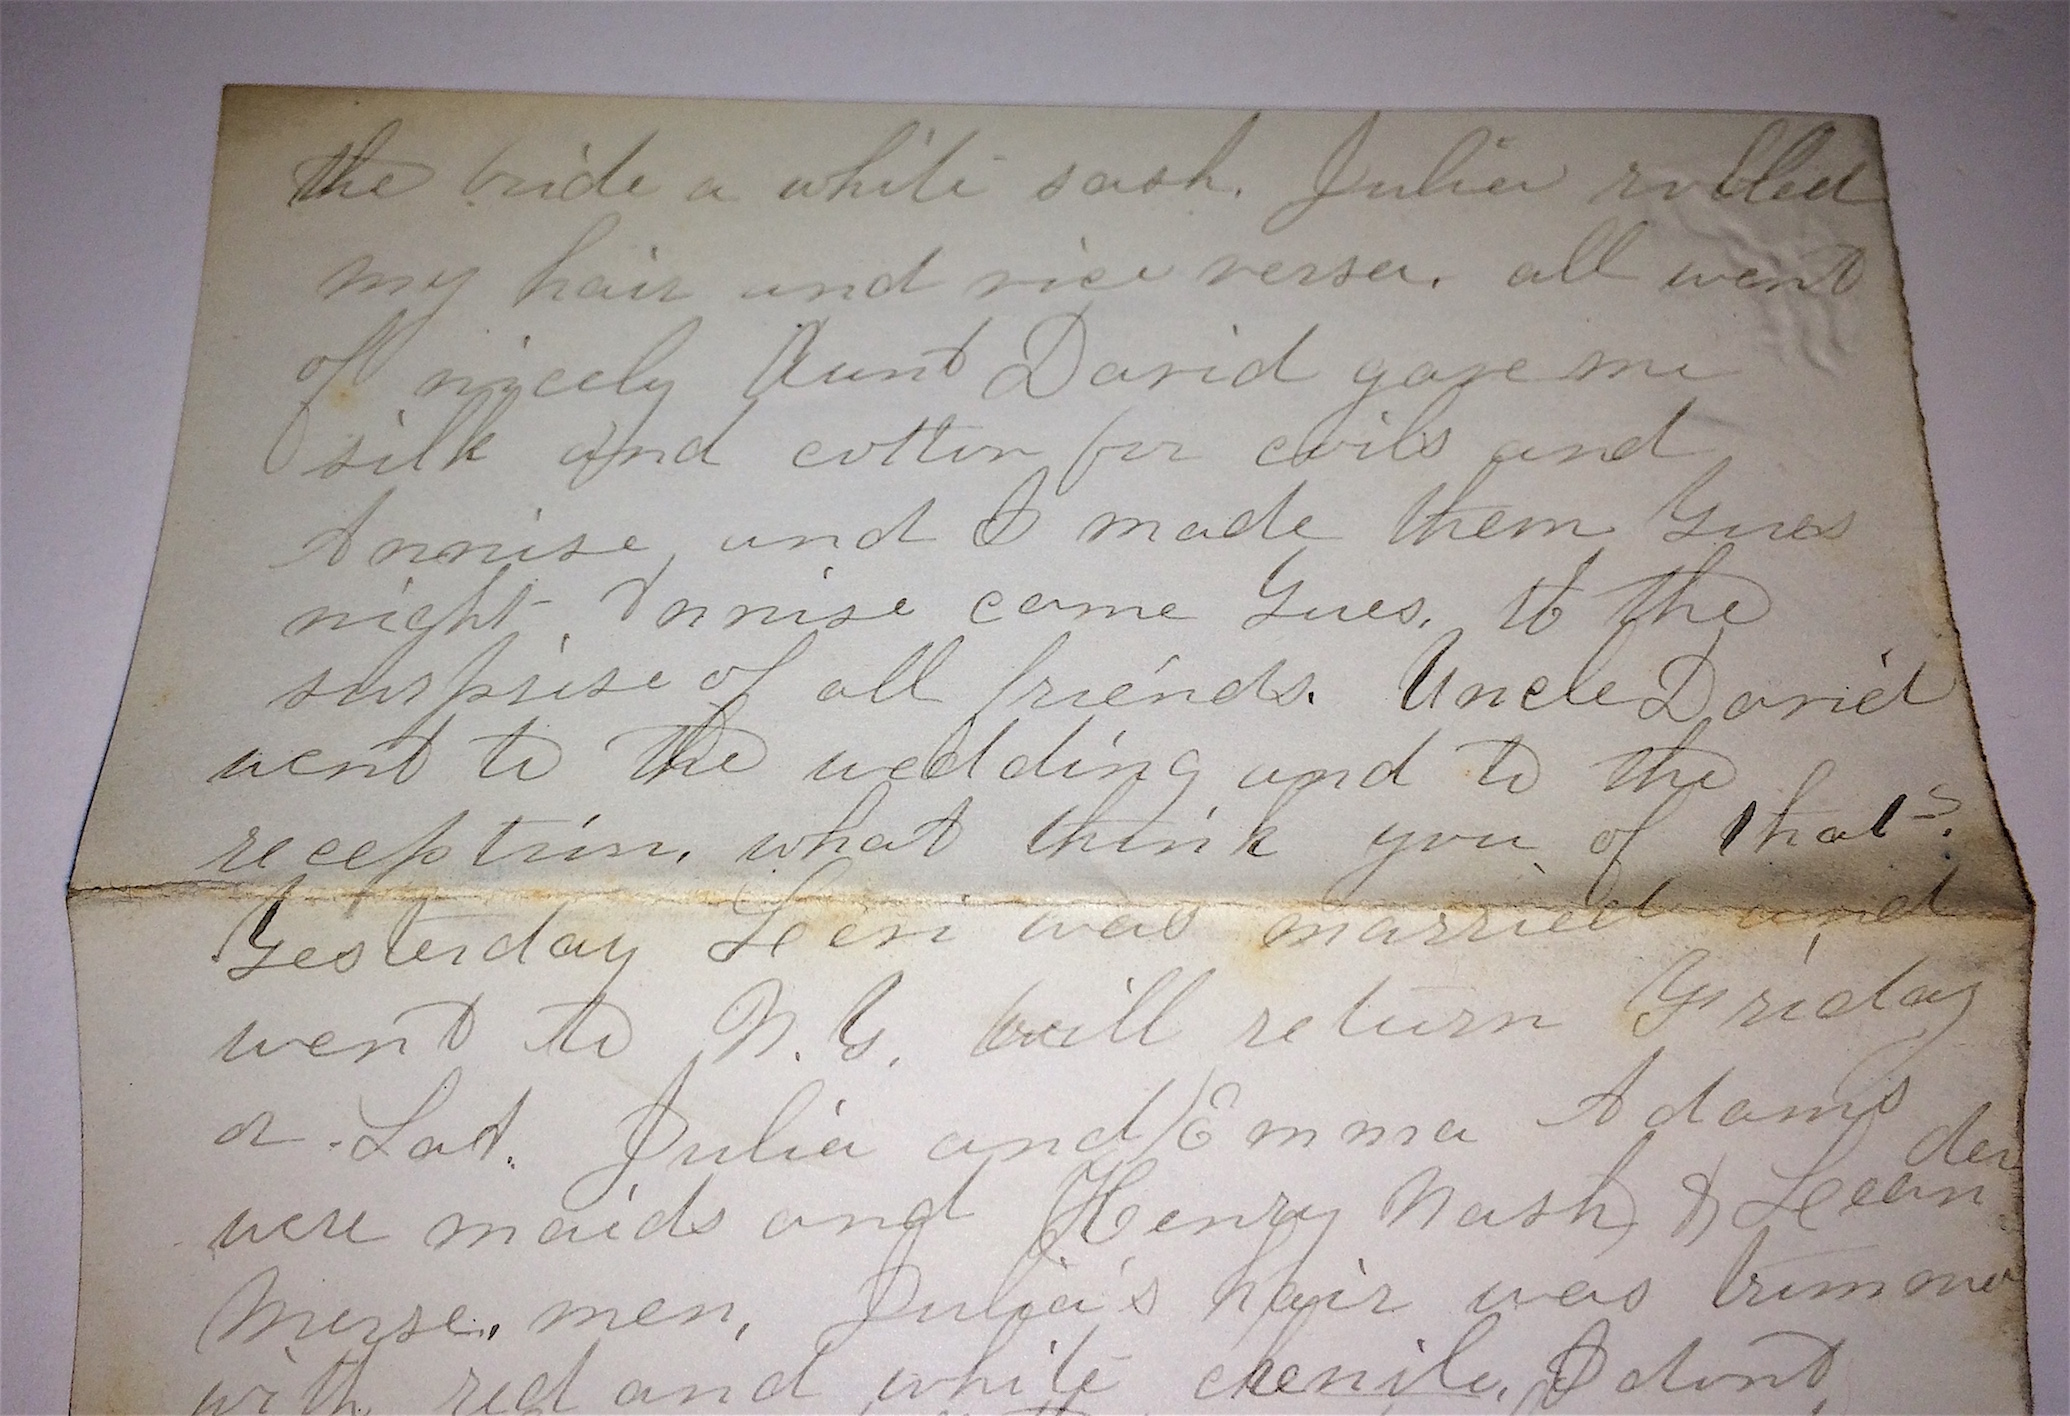 the bride a white sash. Julia rolled
my hair and vice versa. all went
of nicely Aunt David gave me
silk and cotton for coils and
Annise and I made them Tues
night. Annise came Tues. to the
surprise of all friends. Uncle David
went to the wedding and to the
reception. what think you of that?
Yesterday Levi was married and
went to N.Y. will return Friday
or Sat. Julia and Emma Adams
were maids and Henry Nash &
Morse. men, Julia's hair was
with red and white chenile. I dont